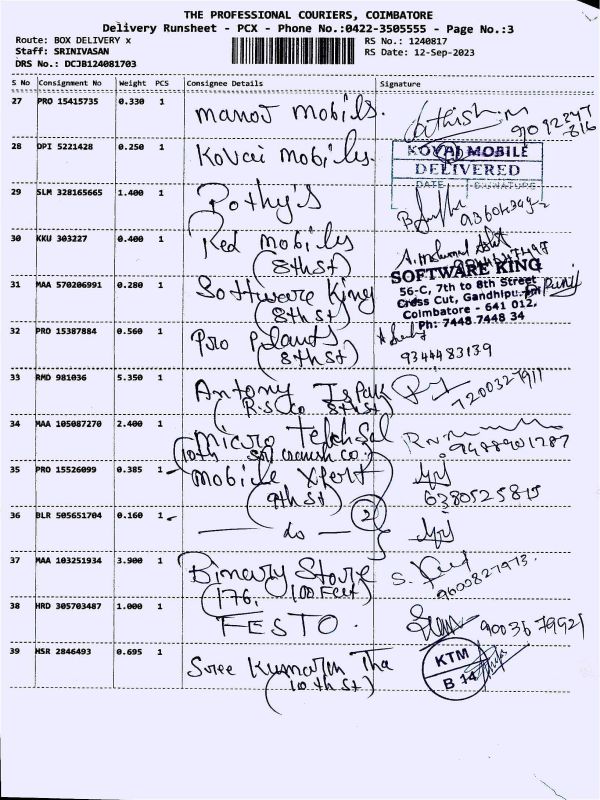 THE PROFESSIONAL COURIERS, COIMBATORE
Delivery Runsheet - PCX - Phone No.:0422-3505555 - Page No.:3
Route: BOX DELIVERY x
RS No.: 1240817
Staff: SRINIVASAN
RS Date: 12-Sep-2023
DRS No.: DCJB124081703
S No Consignment No Weight PCS Consignee Details Signature
27 PRO 15415735 0.330 1 Manoj Mobils.
28 DPI 5221428 0.250 1 Kovai Mobily.
KOVAI MOBILE
DELIVERED
DATE SIGNATURE
29 SLM 328165665 1.400 1 Pothy's
30 KKU 303227 0.400 1 Red Mobily
(8th St)
31 MAA 570206991 0.280 1 Software King
(8th St)
SOFTWARE KING
56-C, 7th to 8th Street
Cross Cut, Gandhipuram
Coimbatore - 641 012.
Ph: 7448 7448 34
32 PRO 15387884 0.560 1 Pro
(8th St)
9344483139
33 RMD 981036 5.350 1 Antony
(R.S. Co 8th St)
7200327911
34 MAA 105087270 2.400 1 Micro
(10th
9488901287
35 PRO 15526099 0.385 1 Mobile Xpert
(9th St)
6380525815
36 BLR 505651704 0.160 1 — do — 2
37 MAA 103251934 3.900 1 Binary Store
(176, 100 Feet)
9600827973.
38 HRD 305703487 1.000 1 FESTO.
9003679921
39 HSR 2846493 0.695 1 Sree Kumaran Tha
(10th St)
KTM
B 14